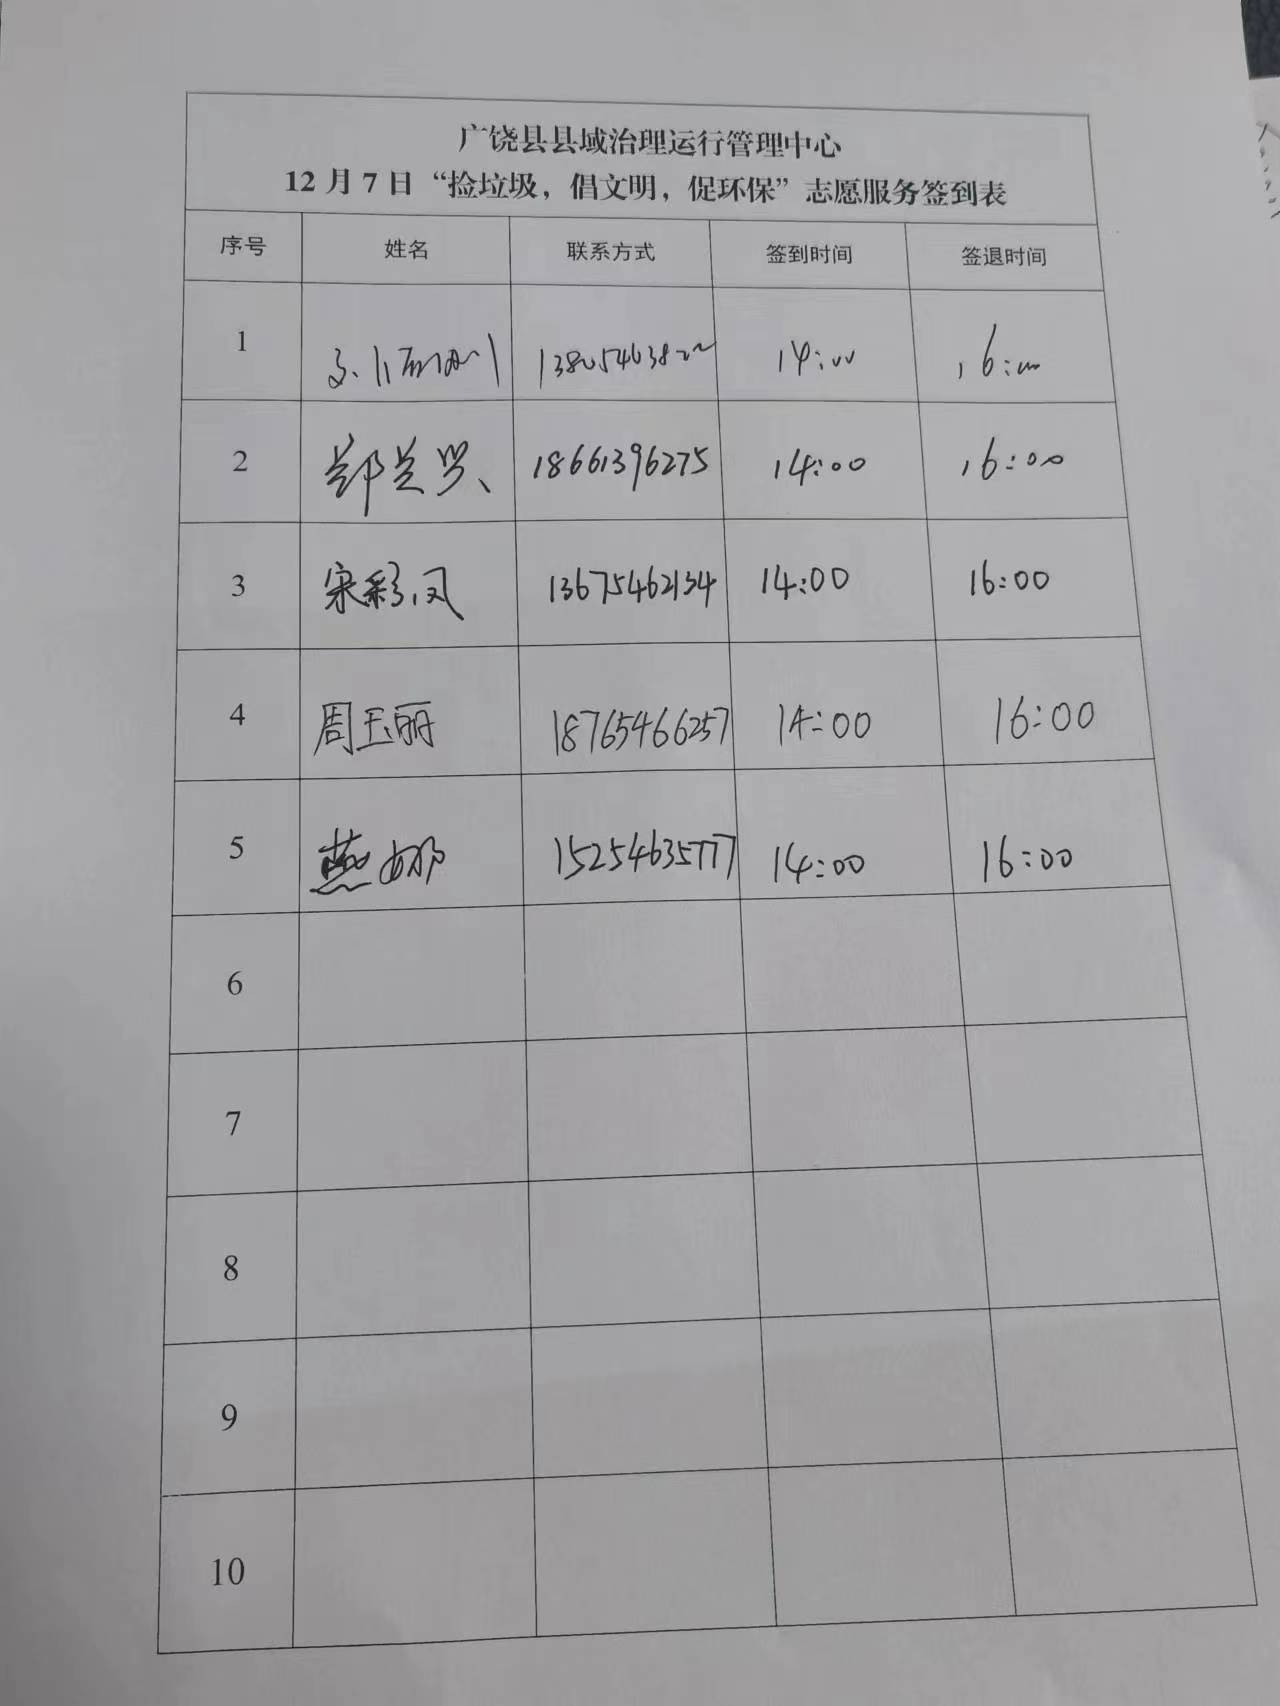 广饶县县域治理运行管理中心
12月7日“捡垃圾，倡文明，促环保”志愿服务签到表
序号 姓名 联系方式 签到时间 签退时间
1 14:00 16:00
2 18661396275 14:00 16:00
3 宋彩凤 13675462134 14:00 16:00
4 周玉丽 18765466257 14:00 16:00
5 燕娜 15254635777 14:00 16:00
6
7
8
9
10